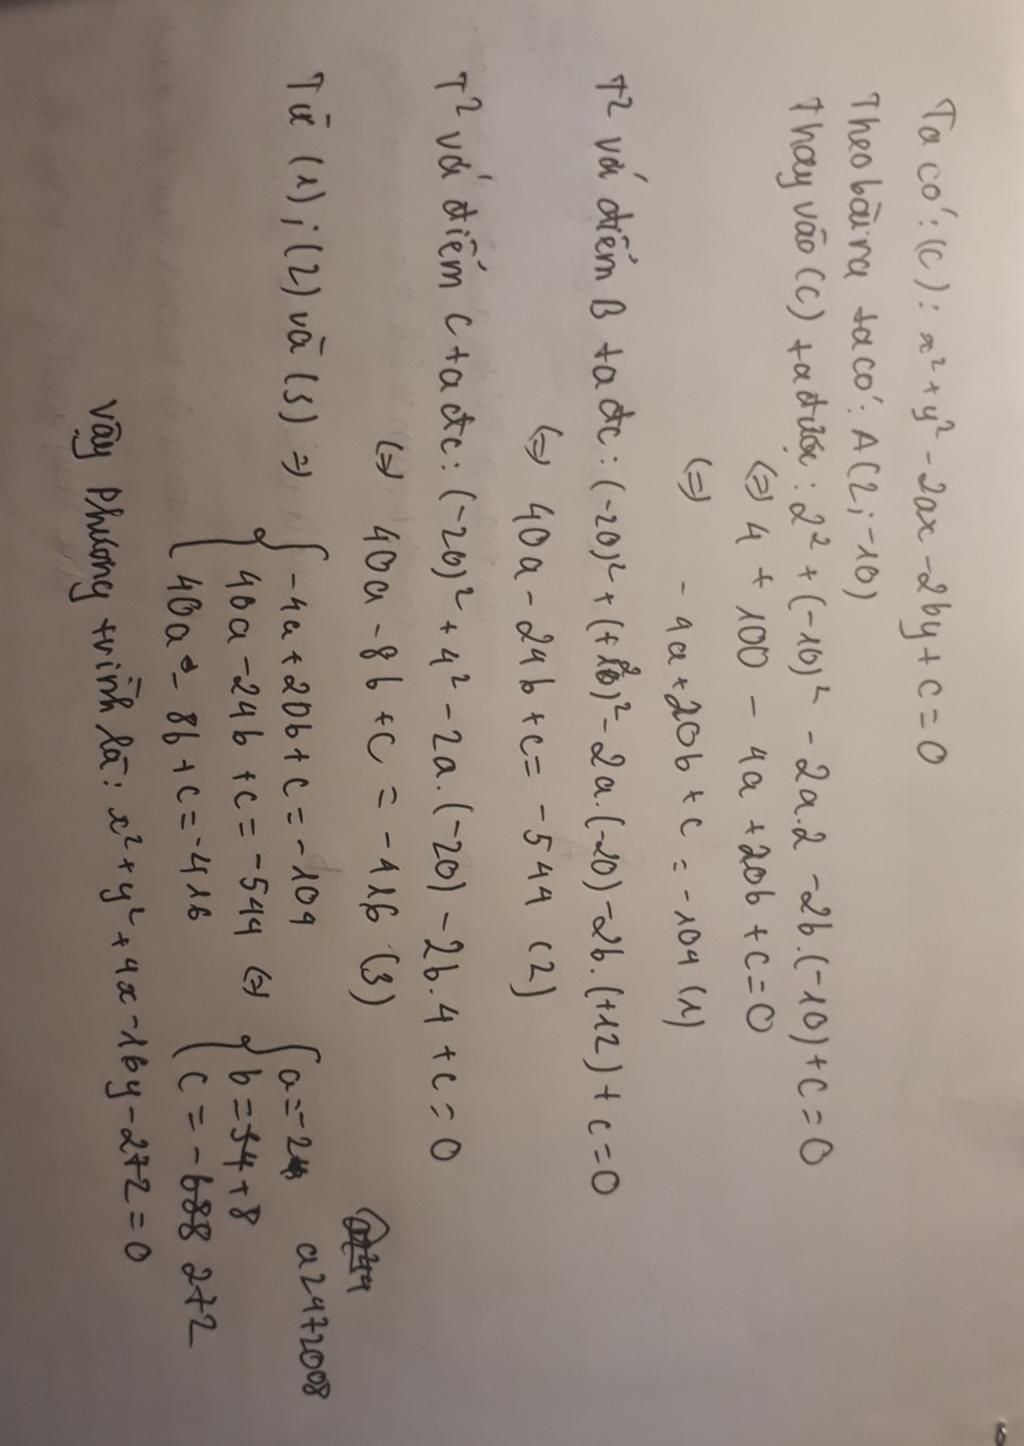 Ta có: (C): x² + y² - 2ax - 2by + c = 0
Theo bài ra ta có: A(2; -10)
Thay vào (C) ta được: 2² + (-10)² - 2a.2 - 2b.(-10) + c = 0
(=) 4 + 100 - 4a + 20b + c = 0
(=) - 4a + 20b + c = -104 (1)
T² với điểm B ta đc: (-20)² + (+12)² - 2a.(-20) - 2b.(+12) + c = 0
(=) 40a - 24b + c = -544 (2)
T² với điểm C ta đc: (-20)² + 4² - 2a.(-20) - 2b.4 + c = 0
(=) 40a - 8b + c = -416 (3)
Từ (1); (2) và (3) =) { -4a + 20b + c = -104
40a - 24b + c = -544 (=)
40a - 8b + c = -416
{ a = -2
b = +8
c = - 272
a2472008
Vậy phương trình là: x² + y² + 4x - 16y - 272 = 0